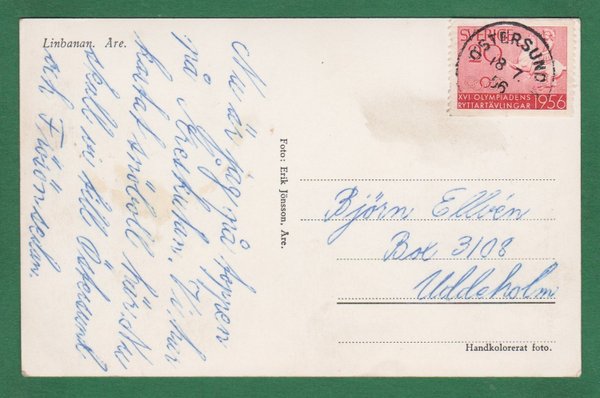 Linbanan. Åre.
Nu är jag på toppen
på
Åreskutan. Vi har
kastat snöboll här. Nu
skall vi till Östersund
och Frösön sedan.
Foto: Erik Jönsson, Åre.
SVERIGE
ÖSTERSUND
18 7
56
XVI OLYMPIADENS
RYTTARTÄVLINGAR 1956
Björn Ellvén
Box 3108
Uddeholm
Handkolorerat foto.